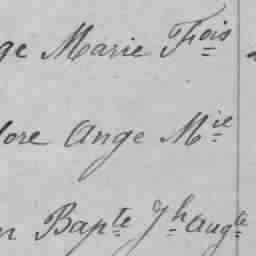 ge Marie Fois
dore Ange Mie
n Bapte Jh Augte